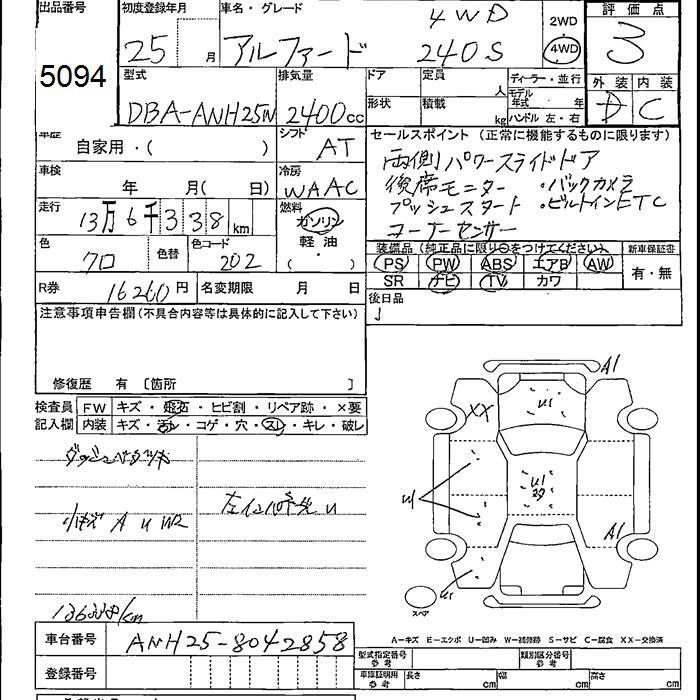 出品番号 5094
初度登録年月 25 月
車名・グレード アルファード 4WD 240S
2WD 4WD
評価点 3
外装 内装 D C
型式 DBA-ANH25W
排気量 2400cc
ドア 定員 人
形状 積載 kg
ディーラー・並行
モデル年式 年
ハンドル 左・右
車歴 自家用・( )
シフト AT
車検 年 月( 日)
冷房 WAAC
走行 13万6千338 km
燃料 ガソリン 軽油 ( ・ )
色 クロ 色替 色コード 202
R券 16260円 名変期限 月 日
セールスポイント (正常に機能するものに限ります)
両側パワースライドドア
後席モニター ・バックカメラ
プッシュスタート ・ビルトインETC
コーナーセンサー
装備品 (純正品に限り○をつけてください) 新車保証書
PS PW ABS エアB AW 有・無
SR ナビ TV カワ
後日品
注意事項申告欄(不具合内容等は具体的に記入して下さい)
修復歴 有 〔箇所 〕
検査員記入欄
FW キズ・飛石・ヒビ割・リペア跡・×要
内装 キズ・汚レ・コゲ・穴・スレ・キレ・破レ
小キズ A U W2
A1
XX
U1
U1
U1
A1
U1
スペア
136338/km
A－キズ E－エクボ U－凹み W－補修跡 S－サビ C－腐食 XX－交換済
車台番号 ANH25-8042858
登録番号
型式指定番号 参考 類別区分番号 参考
車庫証明用 参考 長さ cm 幅 cm 高さ cm